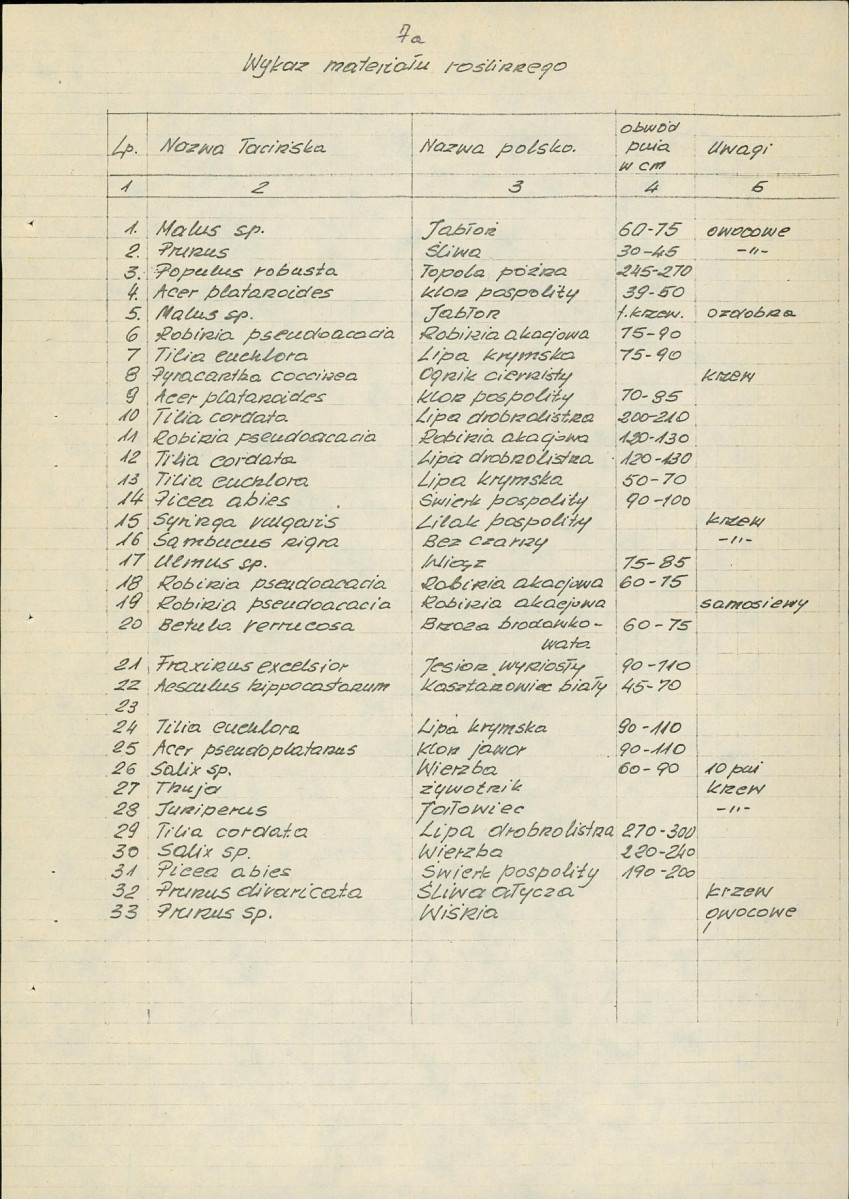 7a
Wykaz materiału roślinnego
Lp. Nazwa łacińska Nazwa polska. obwód pnia w cm Uwagi
1 2 3 4 5
1. Malus sp. Jabłoń 60-75 owocowe
2. Prunus Śliwa 30-45 -"-
3. Populus robusta Topola późna 245-270
4. Acer platanoides Klon pospolity 39-50
5. Malus sp. Jabłoń f.krzew. ozdobna
6 Robinia pseudoacacia Robinia akacjowa 75-90
7 Tilia euchlora Lipa krymska 75-90
8 Pyracantha coccinea Ognik ciernisty krzew
9 Acer platanoides Klon pospolity 70-85
10 Tilia cordata Lipa drobnolistna 200-210
11 Robinia pseudoacacia Robinia akacjowa 120-130
12 Tilia cordata Lipa drobnolistna 120-130
13 Tilia euchlora Lipa krymska 50-70
14 Picea abies Świerk pospolity 90-100
15 Syringa vulgaris Lilak pospolity krzew
16 Sambucus nigra Bez czarny -"-
17 Ulmus sp. Wiąz 75-85
18 Robinia pseudoacacia Robinia akacjowa 60-75
19 Robinia pseudoacacia Robinia akacjowa samosiewy
20 Betula verrucosa Brzoza brodawko- 60-75
wata
21 Fraxinus excelsior Jesion wyniosły 90-110
22 Aesculus hippocastanum Kasztanowiec biały 45-70
23
24 Tilia euchlora Lipa krymska 90-110
25 Acer pseudoplatanus Klon jawor 90-110
26 Salix sp. Wierzba 60-90 10 pni
27 Thuja żywotnik krzew
28 Juniperus Jałowiec -"-
29 Tilia cordata Lipa drobnolistna 270-300
30 Salix sp. Wierzba 220-240
31 Picea abies Świerk pospolity 190-200
32 Prunus divaricata Śliwa ałycza krzew
33 Prunus sp. Wiśnia owocowe